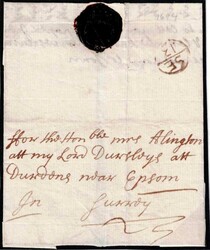 SE
ffor the Hon ble mrs Alington
att my Lord Dursleys att
Durdens near Epsom
In Surrey